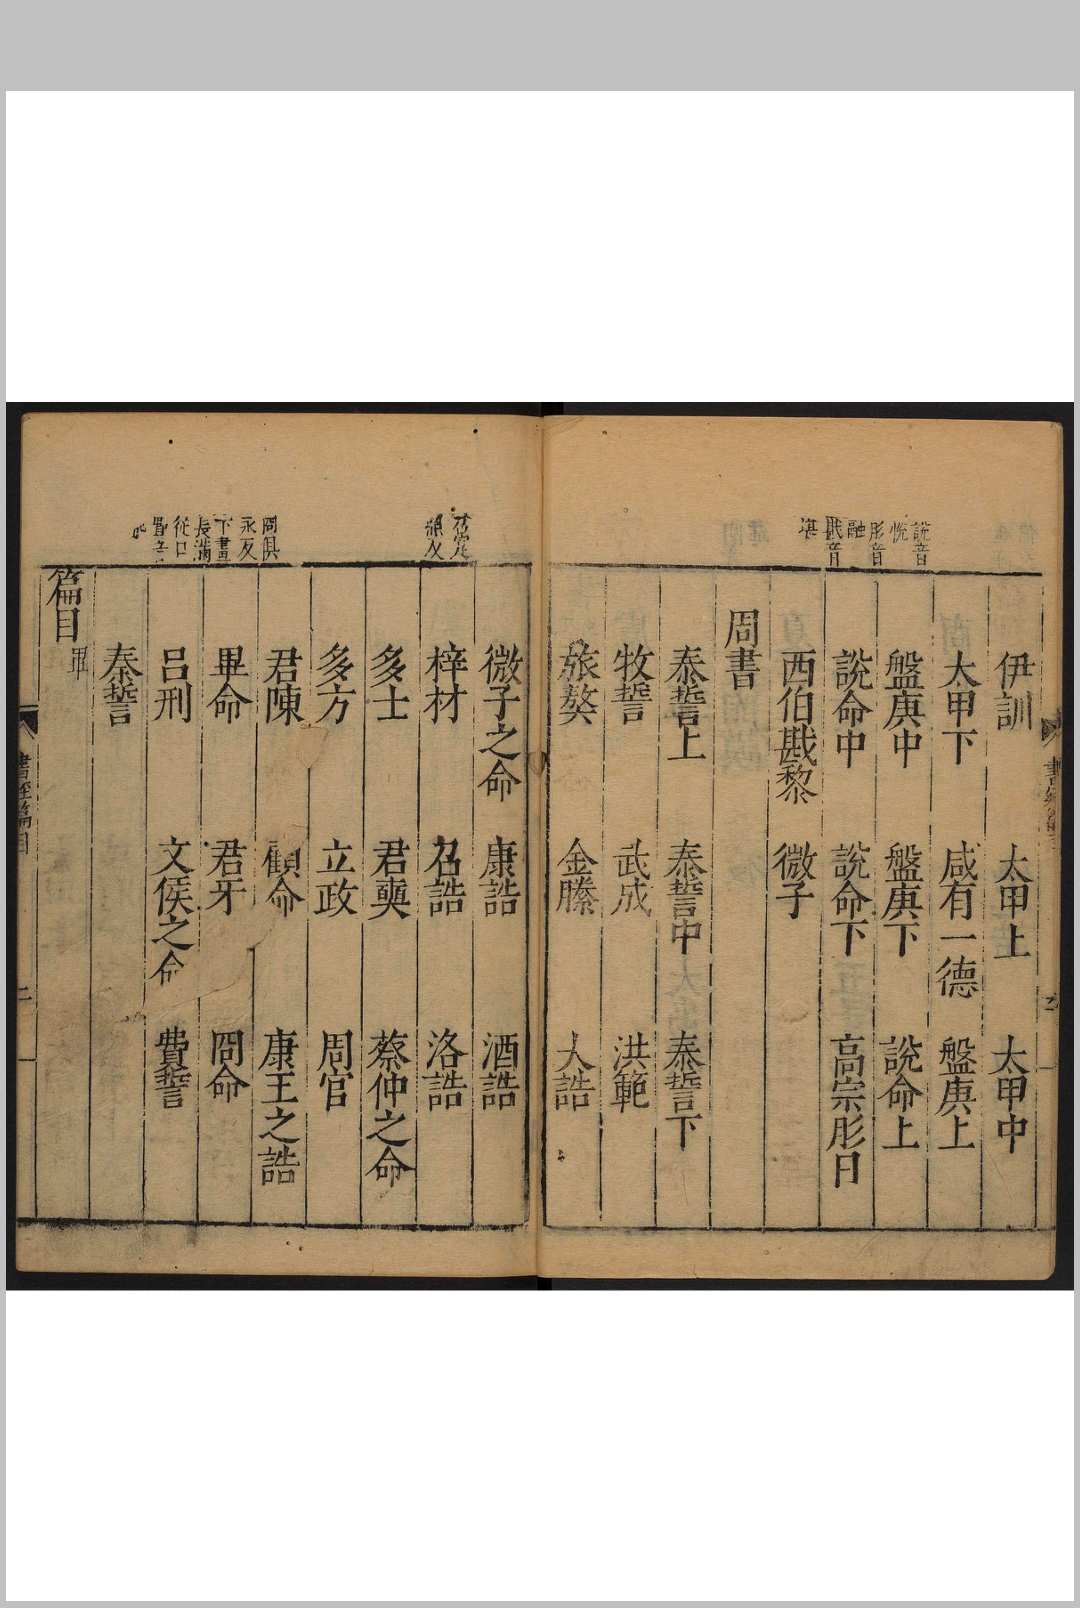 說音
悅
肜音
融
戡音
堪
伊訓 太甲上 太甲中
太甲下 咸有一德 盤庚上
盤庚中 盤庚下 說命上
說命中 說命下 高宗肜日
西伯戡黎 微子
周書
泰誓上 泰誓中 泰誓下
牧誓 武成 洪範
旅獒 金縢 大誥
微子之命 康誥 酒誥
梓材 召誥 洛誥
多士 君奭 蔡仲之命
多方 立政 周官
君陳 顧命 康王之誥
畢命 君牙 冏命
呂刑 文侯之命 費誓
秦誓
篇目畢
冏俱
永反
下畫
長滿
從口
書經篇目
二